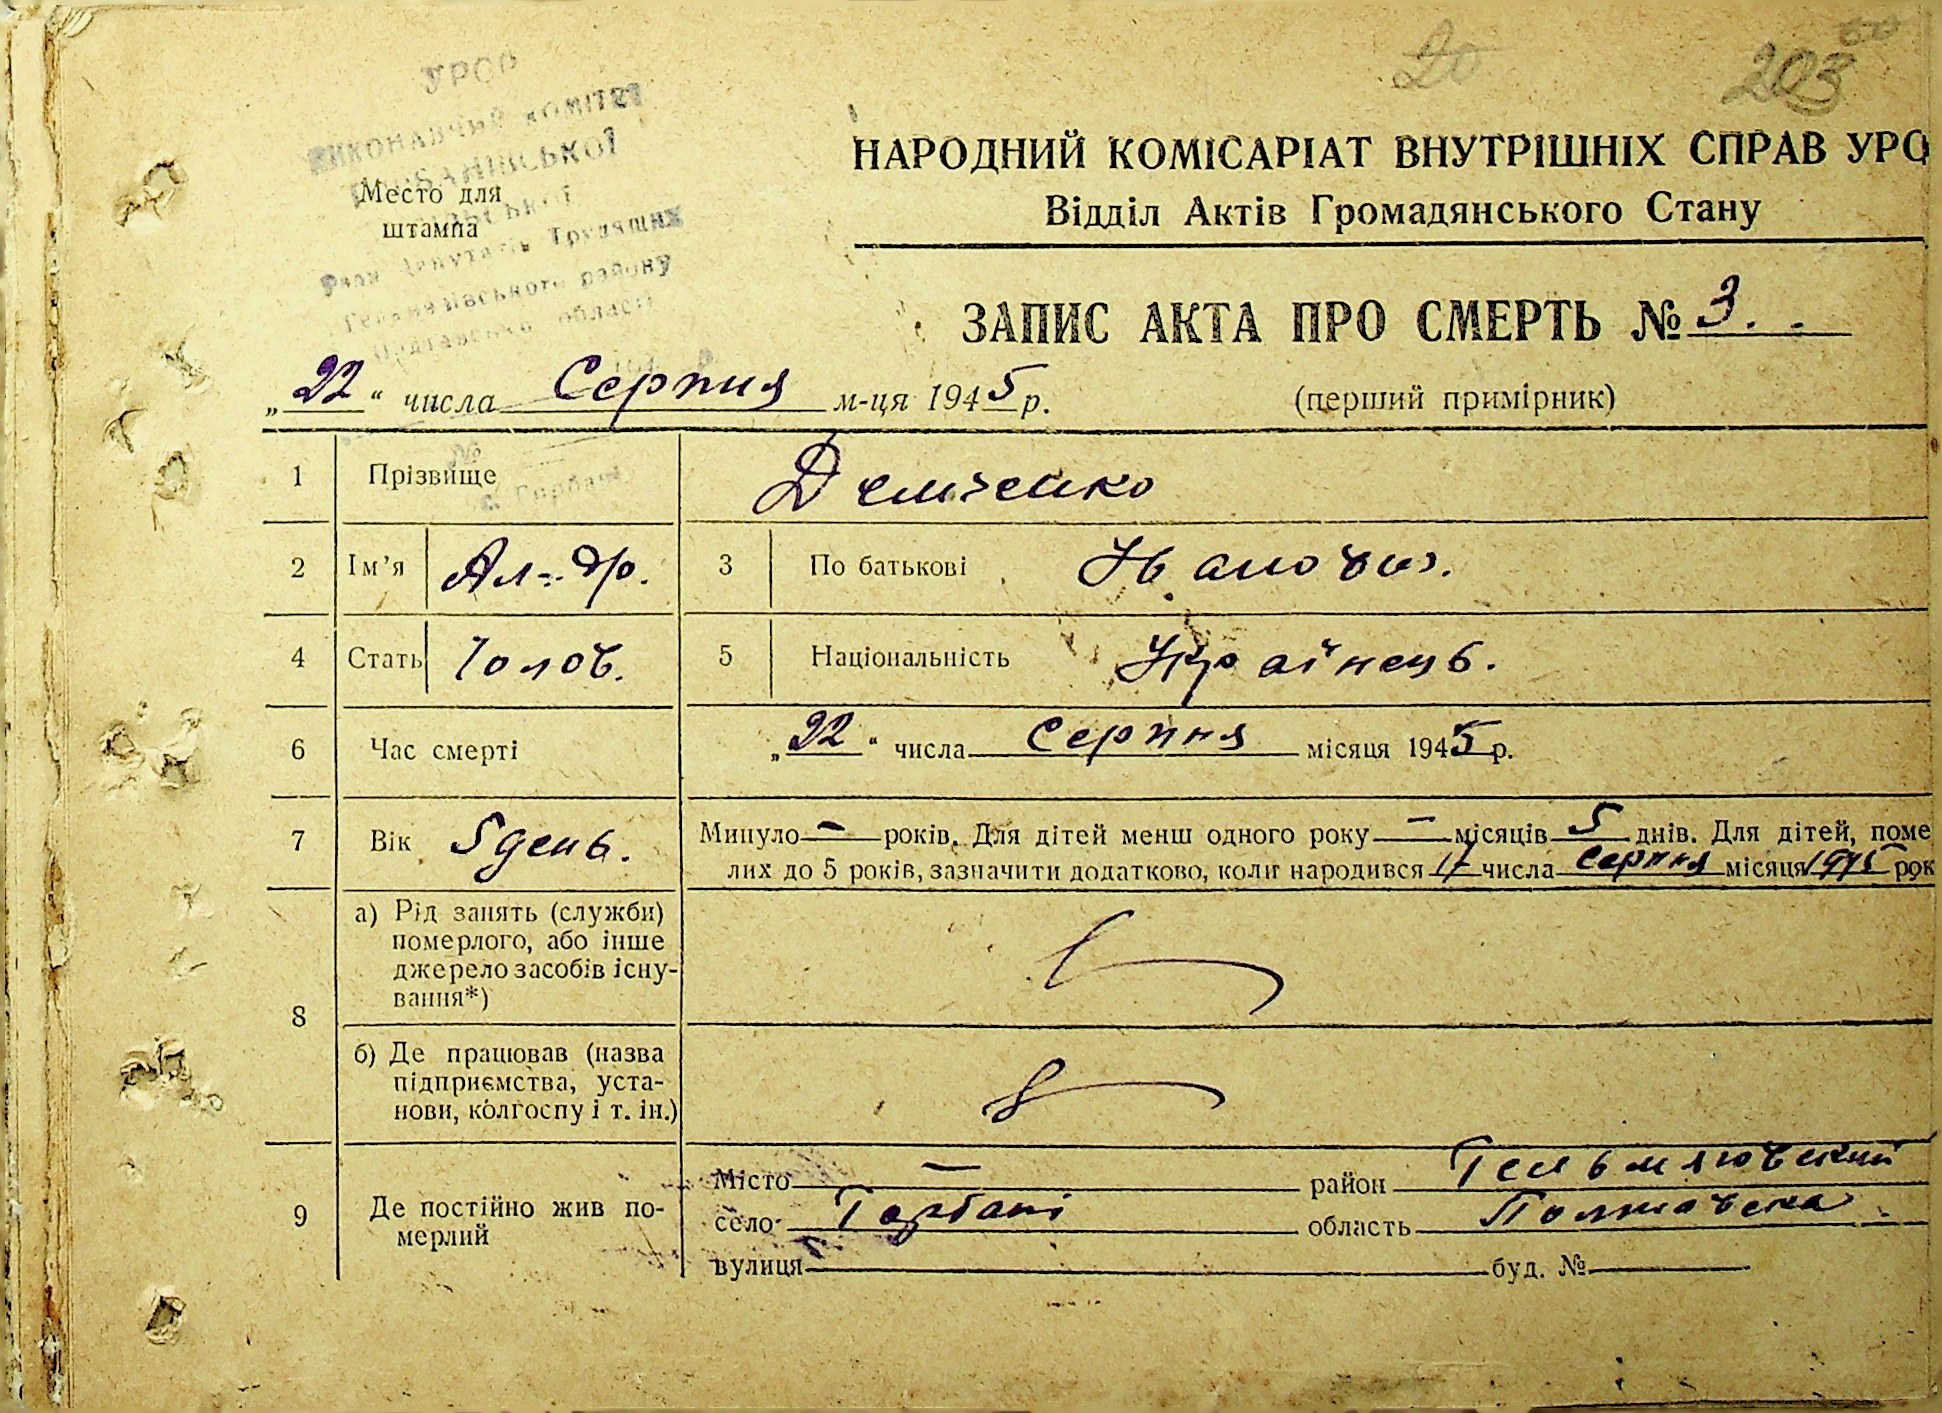 20
203
УРСР
ВИКОНАВЧИЙ КОМІТЕТ
Ради Депутатів Трудящих
району
області
Место для
штампа
НАРОДНИЙ КОМІСАРІАТ ВНУТРІШНІХ СПРАВ УРС
Відділ Актів Громадянського Стану
ЗАПИС АКТА ПРО СМЕРТЬ № 3.
„22“ числа Серпня м-ця 1945 р.
(перший примірник)
1 Прізвище Демченко
2 Ім’я Ал-др. 3 По батькові Іванович.
4 Стать Чолов. 5 Національність Українець.
6 Час смерті „22“ числа Серпня місяця 1945 р.
7 Вік 5 день. Минуло — років. Для дітей менш одного року — місяців 5 днів. Для дітей, поме
лих до 5 років, зазначити додатково, коли народився 17 числа Серпня місяця 1945 рок
8 а) Рід занять (служби)
померлого, або інше
джерело засобів існу-
вання*)
б) Де працював (назва
підприємства, уста-
нови, колгоспу і т. ін.)
9 Де постійно жив по-
мерлий
Місто — район Гельмязовский
село Горбані область Полтавска
вулиця буд. №